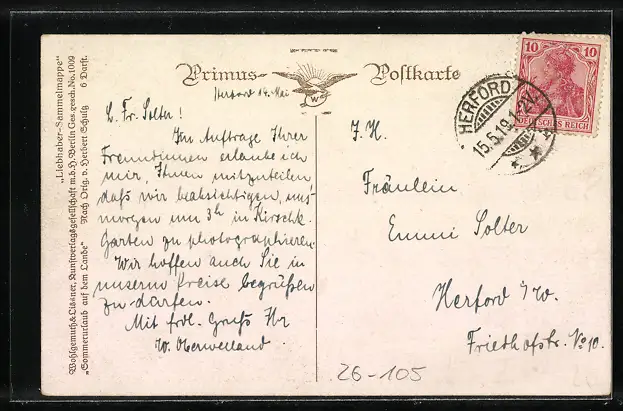 „Liebhaber-Sammelmappe"
Wohlgemuth & Lißner, Kunstverlagsgesellschaft m.b.H. Berlin Ges. gesch. No. 1009
„Sommerurlaub auf dem Lande" Nach Orig. v. Herbert Schulz 6 Darst.
Primus-Postkarte
W
Herford 14. Mai
L. Frl. Solter!
Im Auftrage Ihrer
Freundinnen erlaube ich
mir, Ihnen mitzuteilen
daß wir beabsichtigen, uns
morgen um 3h in Kirschk.
Garten zu photographieren.
Wir hoffen auch Sie in
unserm Kreise begrüßen
zu dürfen.
Mit frdl. Gruß Ihr
W. Oberwelland.
10 10
DEUTSCHES REICH
HERFORD
15.5.19.1-2N.
Fräulein
Emmi Solter
Herford i/W.
Friedhofstr. No 10.
26-105